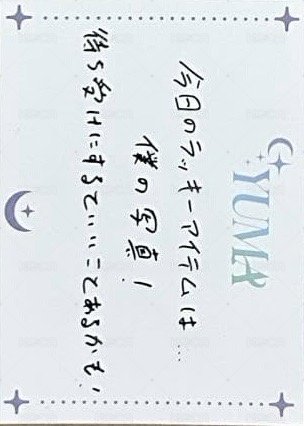 YUMA
今日のラッキーアイテムは...
僕の写真！
待ち受けにするといいことあるかも！